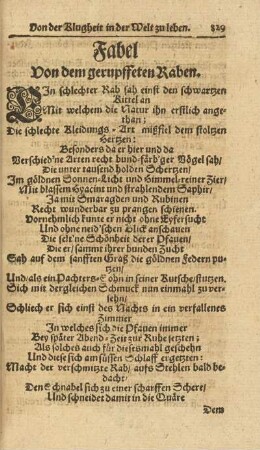 Von der Klugheit in der Welt zu leben. 829
Fabel
Von dem gerupffeten Raben.
EIn schlechter Rab sah einst den schwartzen
Kittel an
Mit welchem die Natur ihn erstlich ange-
than;
Die schlechte Kleidungs-Art mißfiel dem stoltzen
Hertzen:
Besonders da er hier und da
Verschied'ne Arten recht bund-färb'ger Vögel sah/
Die unter tausend holden Schertzen/
Im göldnen Sonnen-Licht und Himmel-reiner Zier/
Mit blassem Hyacint und strahlendem Saphir/
Ja mit Smaragden und Rubinen
Recht wunderbar zu prangen schienen.
Vornehmlich kunte er nicht ohne Eyfersucht
Und ohne neid'schen Blick anschauen
Die selt'ne Schönheit derer Pfauen/
Die er/ sammt ihrer bunden Zucht
Sah auf dem sanfften Graß die göldnen Federn pu-
tzen/
Und/ als ein Pachters-Sohn in seiner Kutsche/ stutzen.
Sich mit dergleichen Schmuck nun einmahl zu ver-
sehn/
Schlich er sich einst des Nachts in ein verfallenes
Zimmer
In welches sich die Pfauen immer
Bey später Abend-Zeit zur Ruhe setzten;
Als solches auch für diesesmahl geschehn
Und diese sich am süssen Schlaff ergetzten:
Macht der verschmitzte Rab/ aufs Stehlen bald be-
dacht/
Den Schnabel sich zu einer scharffen Schere/
Und schneidet damit in die Quäre
Dem